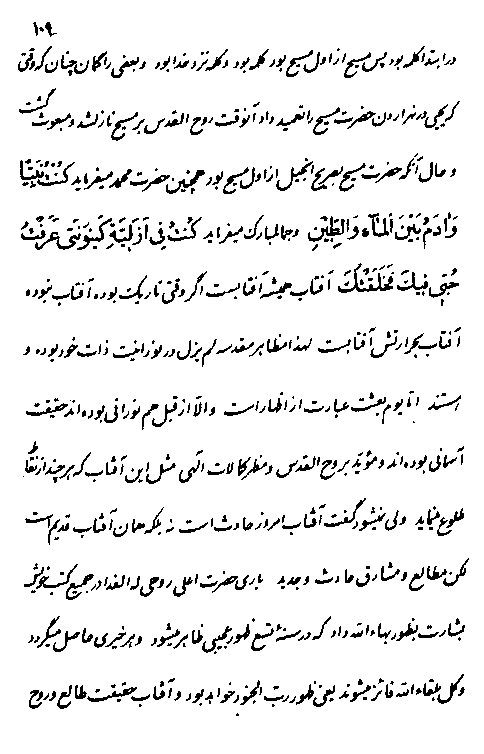 ۱۰۹
در ابتدا کلمه بود پس مسیح از اول مسیح بود کلمه بود و کلمه نزد خدا بود و بعضی را گمان چنان که وقتی
که یحیی در نهر اردن حضرت مسیح را تعمید داد آنوقت روح القدس بر مسیح نازل شد و مبعوث گشت
و حال آنکه حضرت مسیح بصریح انجیل از اول مسیح بود همچنین حضرت محمد میفرماید کُنْتُ نَبِیّاً
وَ آدَمُ بَیْنَ الْمَاءِ وَ الطِّیْنِ و جمال مبارک میفرماید کُنْتُ فِی أَزَلِیَّةِ کَیْنُونَتِی عَرَفْتُ
حُبِّی فِیكَ فَخَلَقْتُكَ آفتاب همیشه آفتابست اگر وقتی تاریک بوده آفتاب نبوده
آفتاب بحرارتش آفتابست لهذا مظاهر مقدسه لم یزل در نورانیت ذات خود بوده و
هستند اما یوم بعثت عبارت از اظهار است والا از قبل هم نورانی بوده‌اند حقیقت
آسمانی بوده‌اند و مؤید بروح القدس و مظهر کمالات الهی مثل این آفتاب که هر چند از نقاط
طلوع نماید ولی نمیشود گفت آفتاب امروز حادث است نه بلکه همان آفتاب قدیم است
لکن مطالع و مشارق حادث و جدید باری حضرت اعلی روحی له الفدا در جمیع کتب خویش
بشارت بظهور بهاءالله داد که در سنهٔ تسع ظهور عجیبی ظاهر میشود و هر خیری حاصل میگردد
و کل بلقاءالله فائز میشوند یعنی ظهور رب الجنود خواهد بود و آفتاب حقیقت طالع و روح